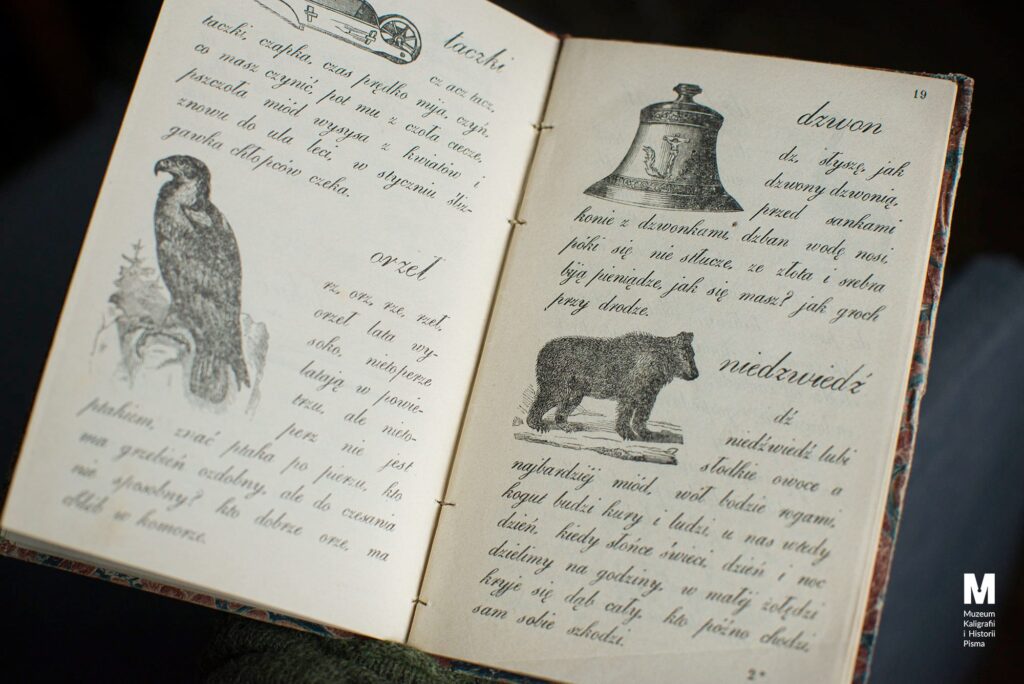 taczki
cz acz tacz,
taczki, czapka, czas prędko mija, czyń,
co masz czynić, pot mu z czoła ciecze,
pszczoła miód wysysa z kwiatów i
znowu do ula leci, w styczniu śliz-
gawka chłopców czeka.
orzeł
rz, orz, rze, rzeł,
orzeł lata wy-
soko, nietoperze
latają w powie-
trzu, ale nieto-
perz nie jest
ptakiem, znać ptaka po pierzu, kto
ma grzebień ozdobny, ale do czesania
nie sposobny? kto dobrze orze, ma
chléb w komorze.
19
dzwon
dz, słyszę, jak
dzwony dzwonią,
przed sankami
konie z dzwonkami, dzban wodę nosi,
póki się nie stłucze, ze złota i srebra
biją pieniądze, jak się masz? jak groch
przy drodze.
niedzwiedź
dź
niedźwiedź lubi
słodkie owoce a
najbardziéj miód, wół bodzie rogami,
kogut budzi kury i ludzi, u nas wtedy
dzień, kiedy słońce świeci, dzień i noc
dzielimy na godziny, w małéj żołędzi
kryje się dąb cały, kto późno chodzi,
sam sobie szkodzi.
2*
M
Muzeum
Kaligrafii
i Historii
Pisma